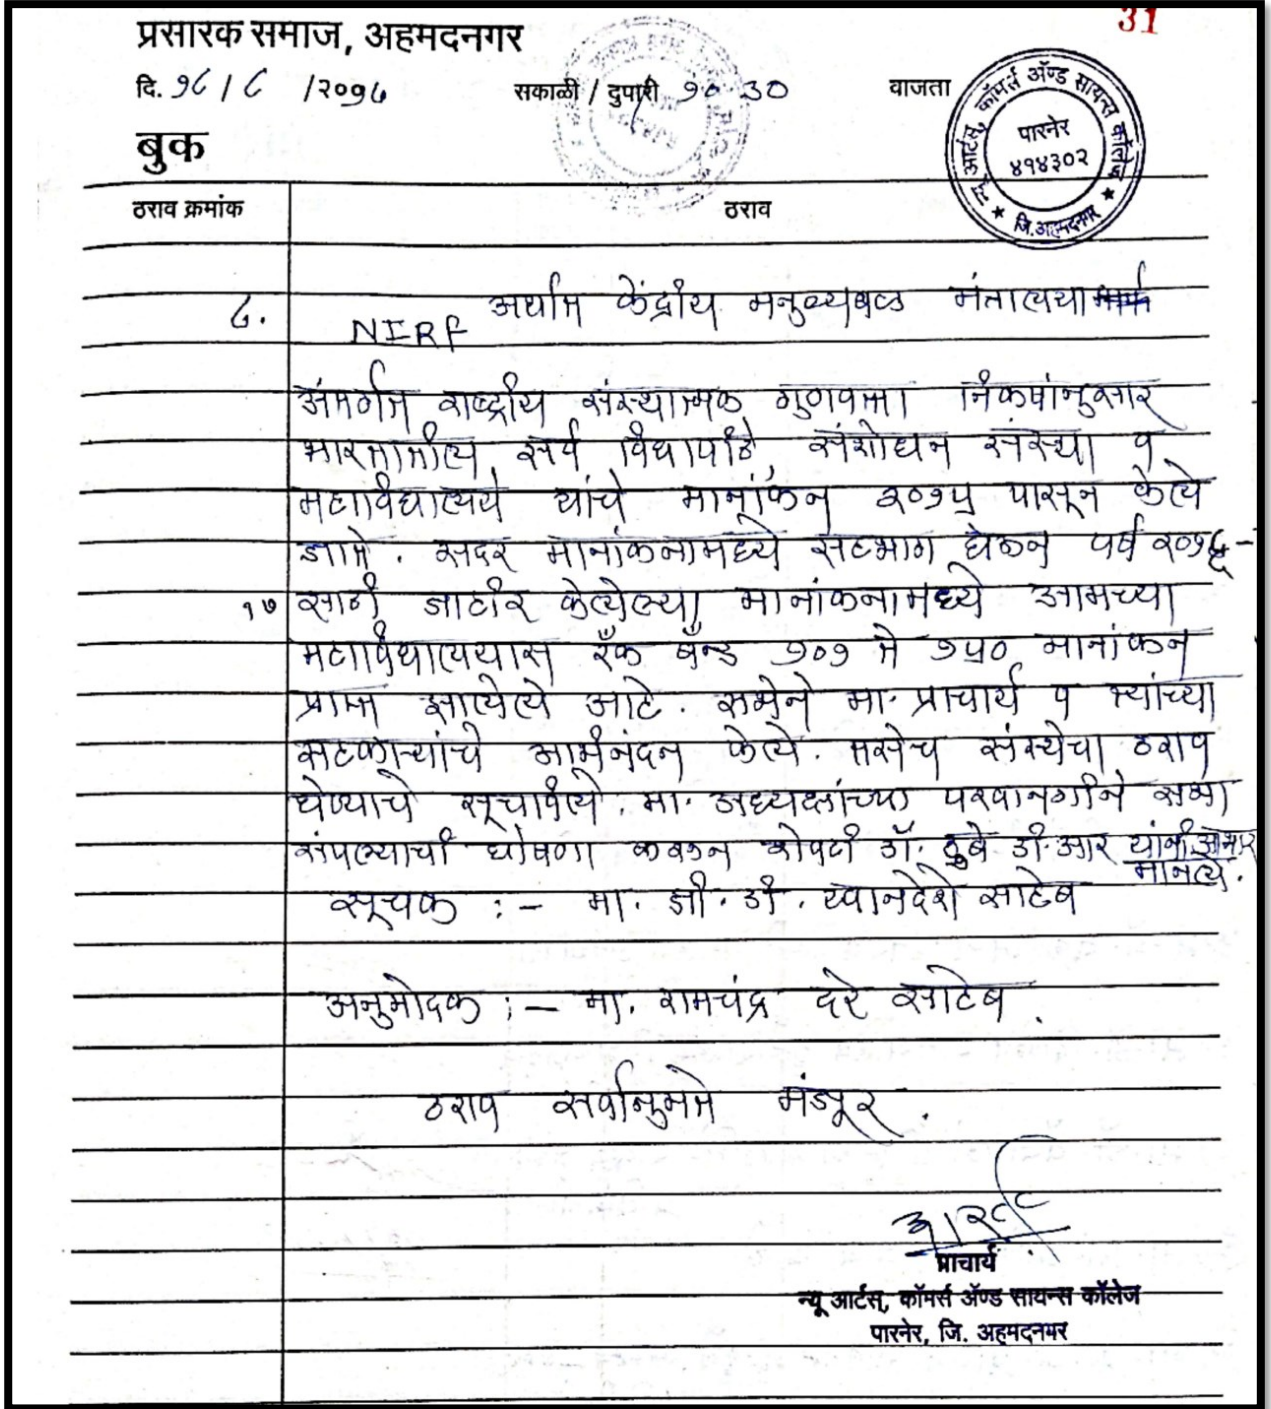 31
प्रसारक समाज, अहमदनगर
दि. १८ / ८ / २०१७ सकाळी / दुपारी १०.३० वाजता
न्यू आर्टस्, कॉमर्स ॲण्ड सायन्स कॉलेज
पारनेर
४१४३०२
जि.अहमदनगर
बुक
ठराव क्रमांक ठराव
८. NIRF अर्थात केंद्रीय मनुष्यबळ मंत्रालयाच्या
अंतर्गत राष्ट्रीय संस्थात्मक गुणवत्ता निकषांनुसार
भारतातील सर्व विद्यापीठे, संशोधन संस्था व
महाविद्यालये यांचे मानांकन २०१५ पासून केले
जाते. सदर मानांकनामध्ये सहभाग घेऊन वर्ष २०१६-
१७ साठी जाहीर केलेल्या मानांकनामध्ये आमच्या
महाविद्यालयास रँक बॅन्ड १०१ ते १५० मानांकन
प्राप्त झालेले आहे. सभेने मा. प्राचार्य व त्यांच्या
सहकाऱ्यांचे अभिनंदन केले. तसेच संस्थेचा ठराव
घेण्याचे सूचविले. मा. अध्यक्षांच्या परवानगीने सभा
संपल्याची घोषणा करून शेवटी डॉ. ठुबे डी.आर यांनी आभार
मानले.
सूचक :- मा. जी. डी. खानदेशे साहेब
अनुमोदक :- मा. रामचंद्र दरे साहेब.
ठराव सर्वानुमते मंजूर.
प्राचार्य
न्यू आर्टस्, कॉमर्स ॲण्ड सायन्स कॉलेज
पारनेर, जि. अहमदनगर